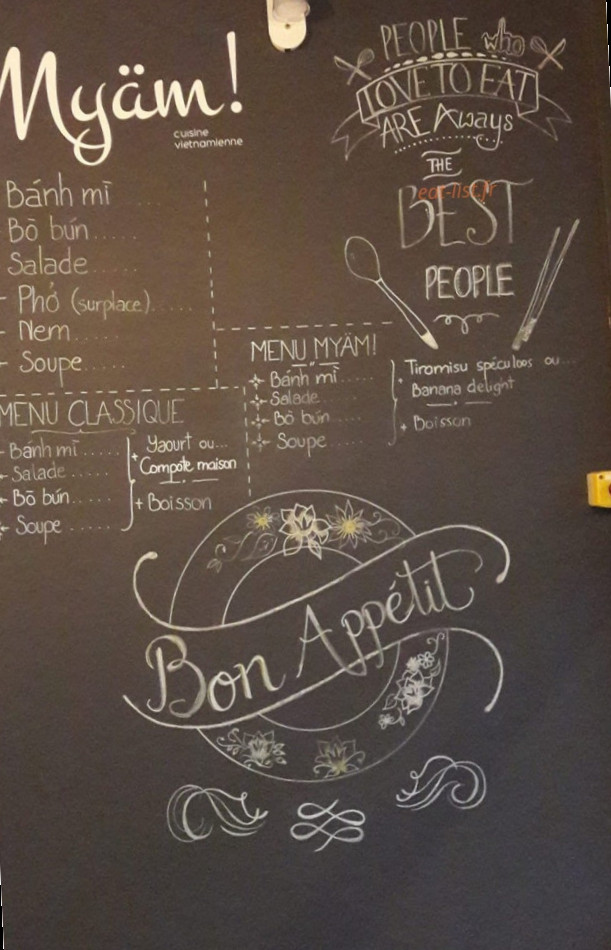 Myäm!
cuisine
vietnamienne
Bánh mì ......
Bò bún......
Salade......
- Phở (surplace)......
- Nem......
- Soupe......
MENU CLASSIQUE
- Bánh mì ......
- Salade ......
- Bò bún......
- Soupe ......
+ Yaourt ou...
Compote maison
+ Boisson
PEOPLE who
LOVE TO EAT
ARE Aways
THE
BEST
eat-list.fr
PEOPLE
MENU MYÄM!
- Bánh mì ......
- Salade ......
- Bò bún ......
- Soupe ......
+ Tiromisu spéculoos ou...
Banana delight
+ Boisson
Bon Appétit